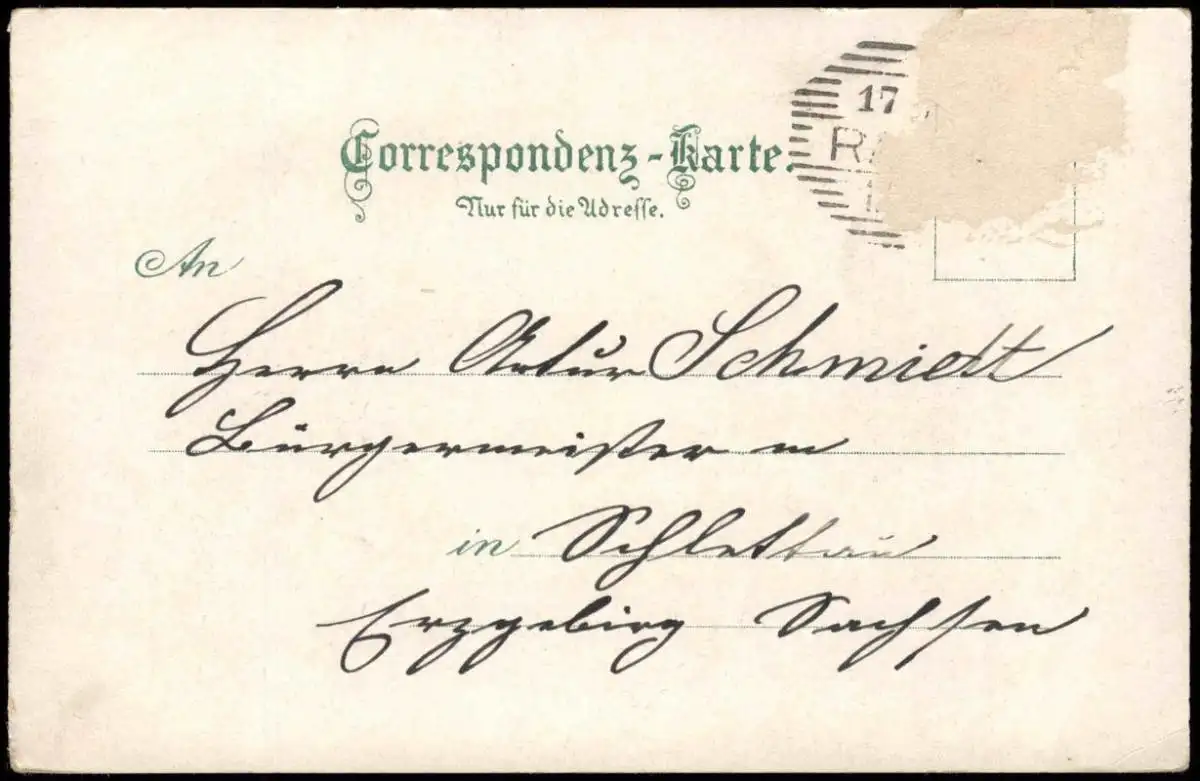 Correspondenz-Karte.
Nur für die Adresse.
17
An
Herrn Artur Schmidt
Bürgermeister
in Schlettau
Erzgebirg Sachsen